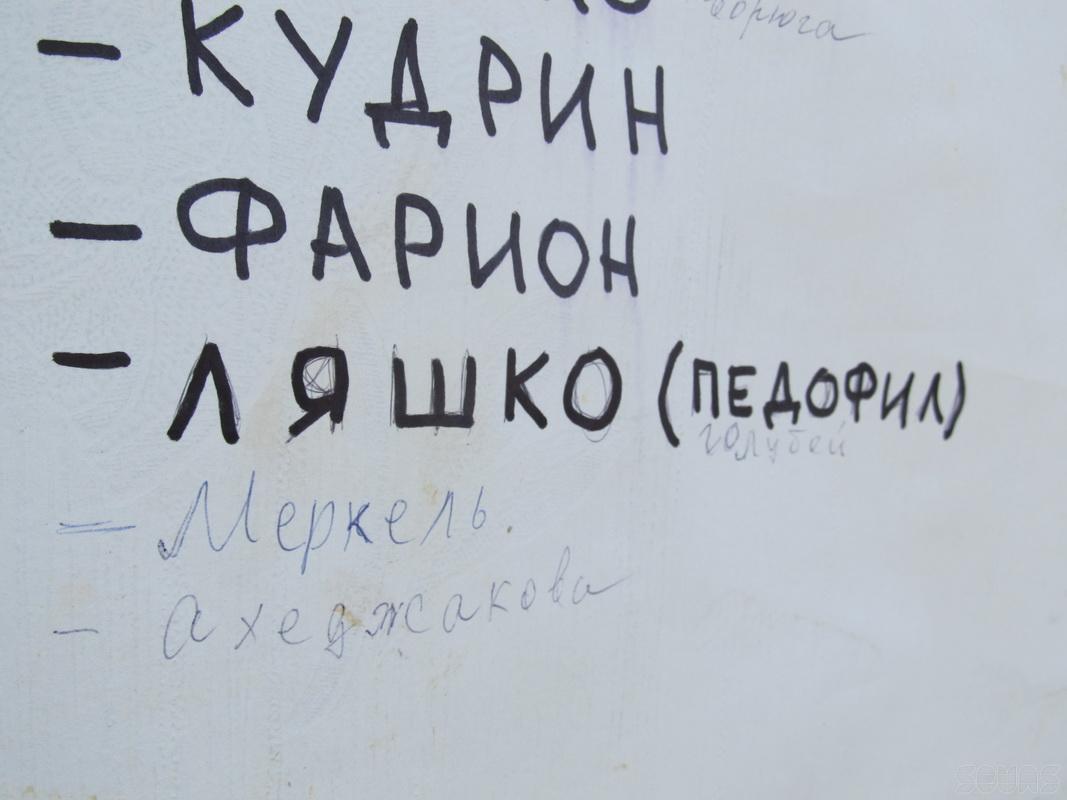 - КУДРИН
- ФАРИОН
- ЛЯШКО (ПЕДОФИЛ)
голубей
- Меркель
- Ахеджакова